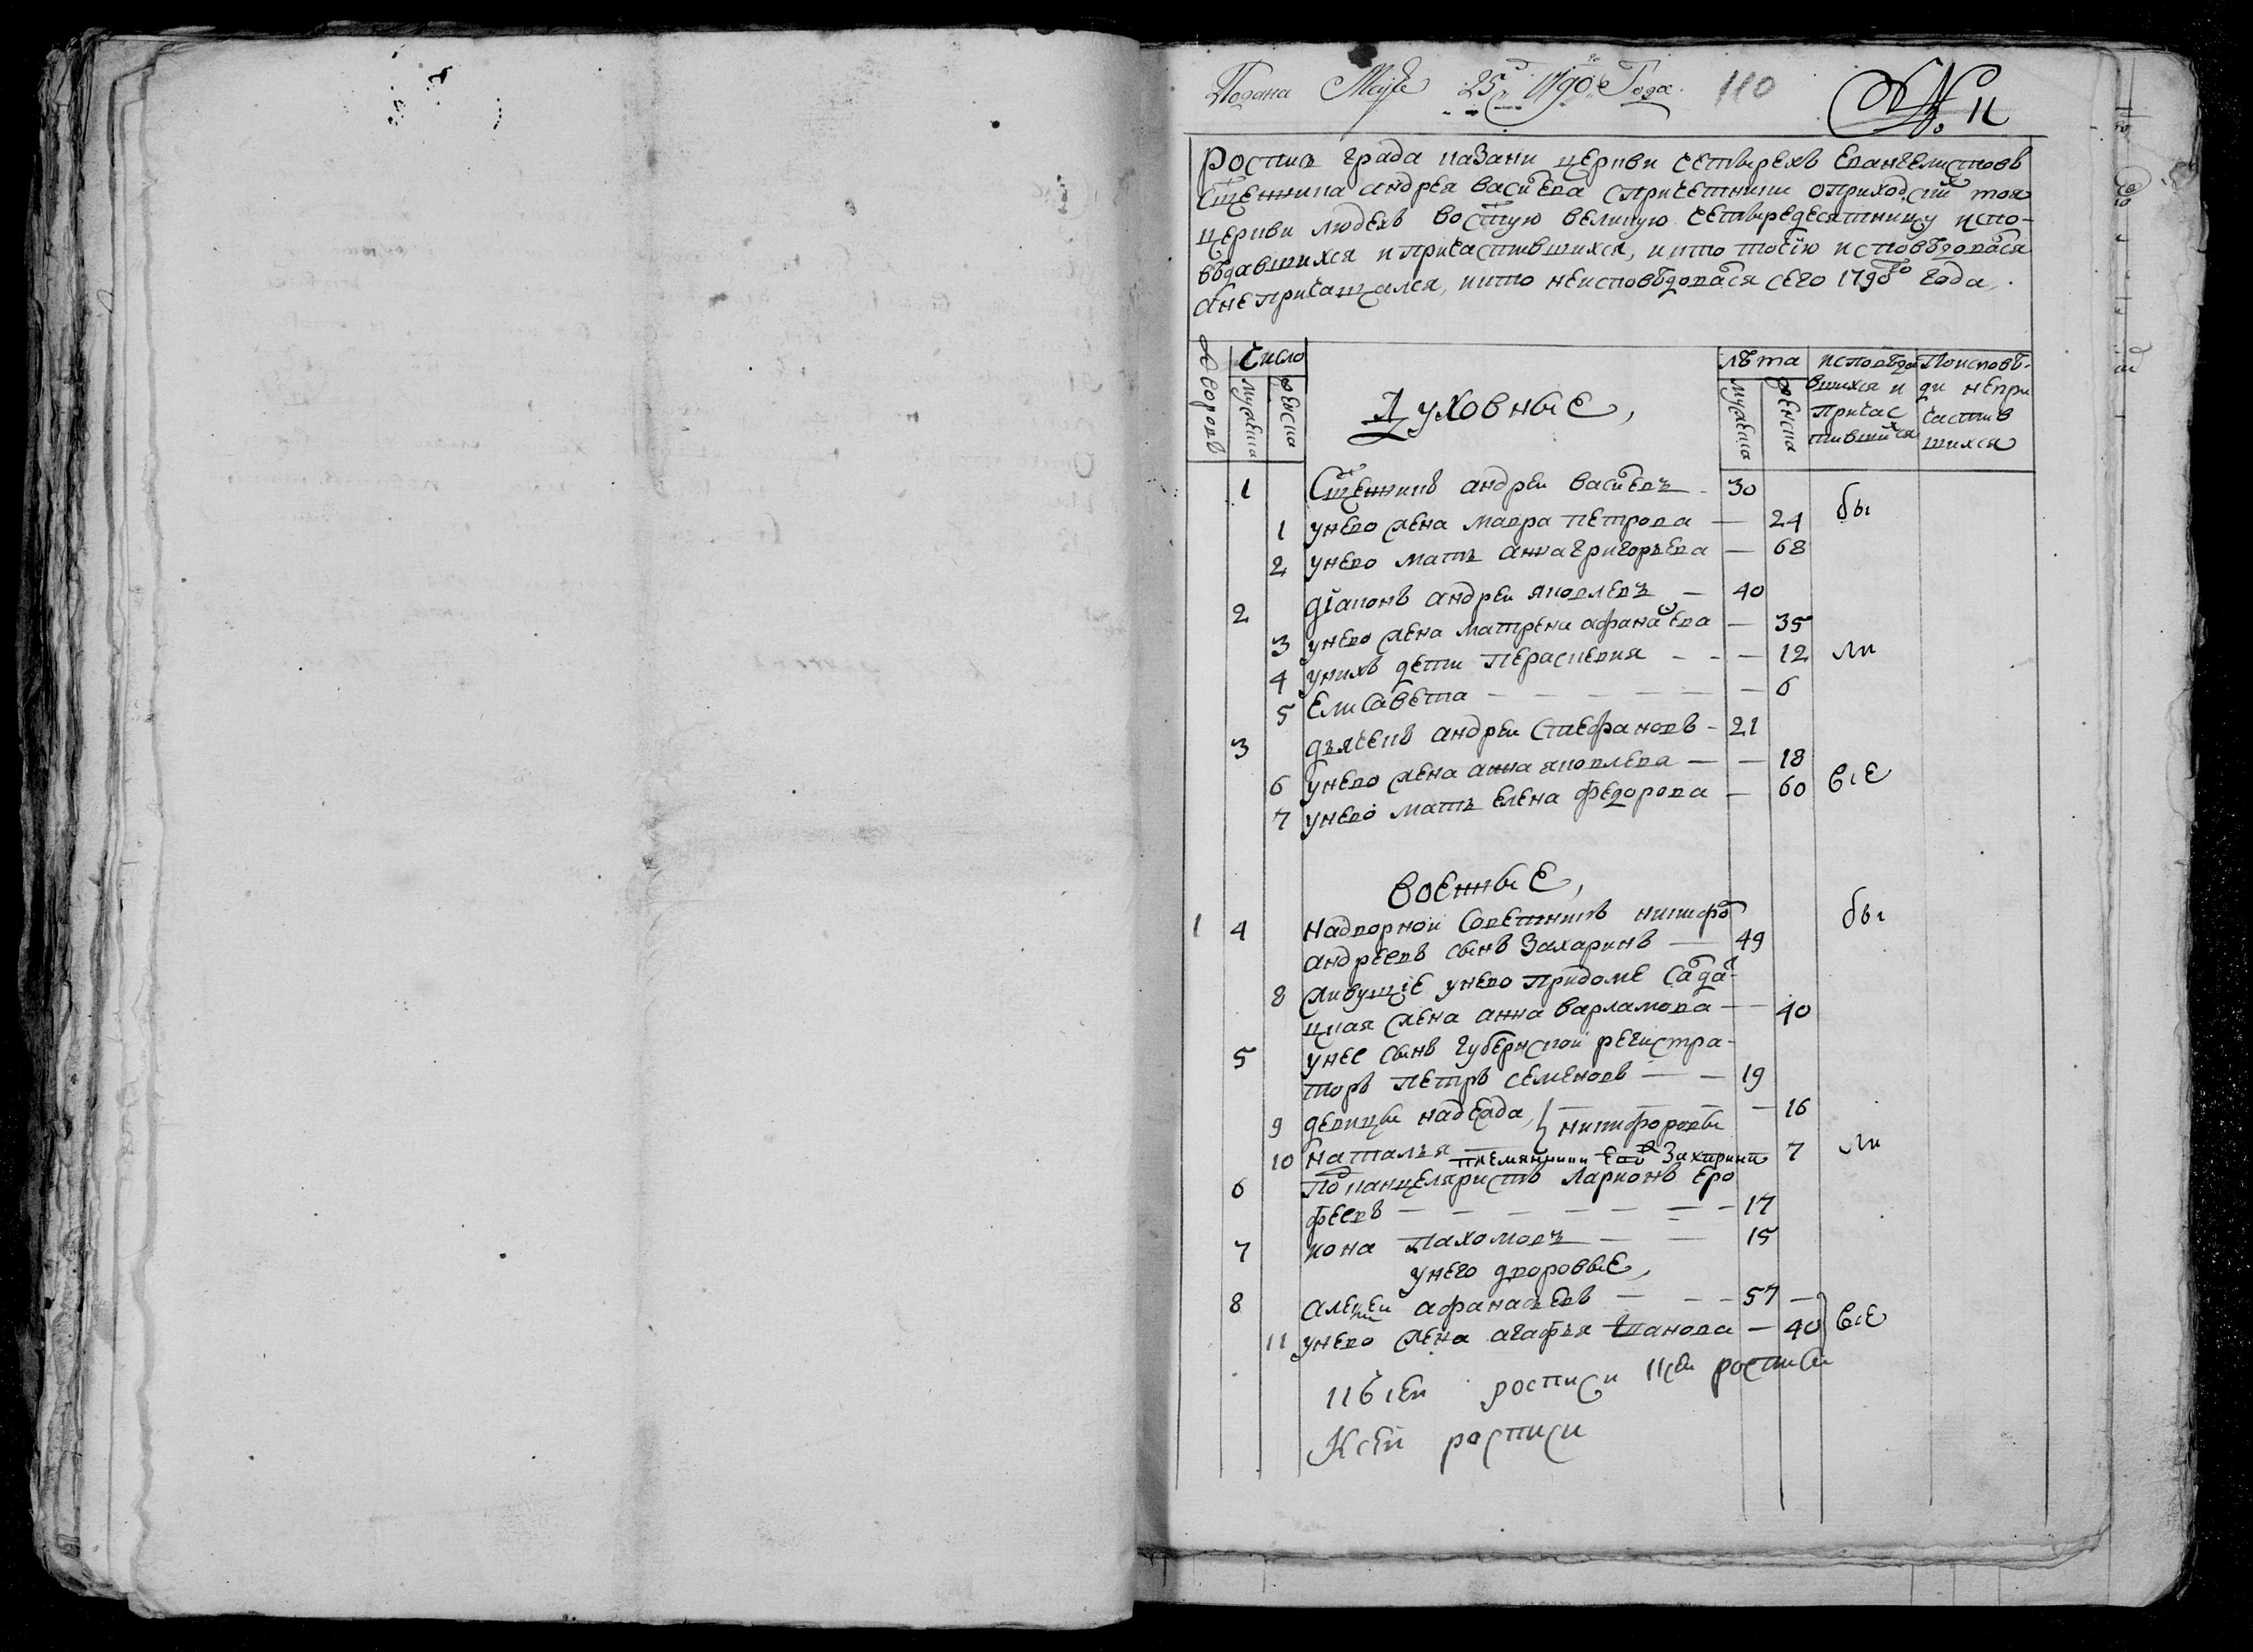 Подана Маiя 25 д 1790 го Года. 110 № 11
Роспись града Казани церкви четырехъ Евангелистовъ
Священника андрея василева спричетники оприходских тоя
церкви людехъ восвятую великую четыредесятницу испо-
вѣдавшихся и причастившихся, икто точiю исповѣдовался
анепричащался, икто неисповѣдовался сего 1790го года.
Дворовъ Число Духовные, лѣта исповѣда Поисповѣ-
мужеска женска мужеска женска вшихся и ди непри
причас частив
тившихся шихся
1 Священникъ андреи василевъ 30
1 унево жена мавра петрова — 24 бы
2 унево мать анна григорьева — 68
2 дiаконъ андреи яковлевъ — 40
3 унево жена матрена афанасева — 35
4 унихъ дети Пераскевия — 12 ли
5 Елисавета — 6
3 дьячекъ андреи Стефановъ - 21
6 унево жена анна яковлева — 18
7 унево мать елена федорова — 60 все
Военные,
1 4 надворнои советникъ никифо бы
андреевъ сынъ Захаринъ — 49
8 живущiе унево придоме салда-
цкая жена анна варламова — 40
5 унее сынъ губернскои регистра-
торъ петръ семеновъ — 19
9 девицы надежда, — 16
никифоровы
10 наталья племянники ево Захарина 7 ли
6 Подканцеляристъ Ларионъ Еро
феевъ — 17
7 иона Пахомовъ — 15
унего дворовые,
8 алексеи афанасьевъ — 57
11 унево жена агафья — 40 все
росписи росписи
К сеи росписи